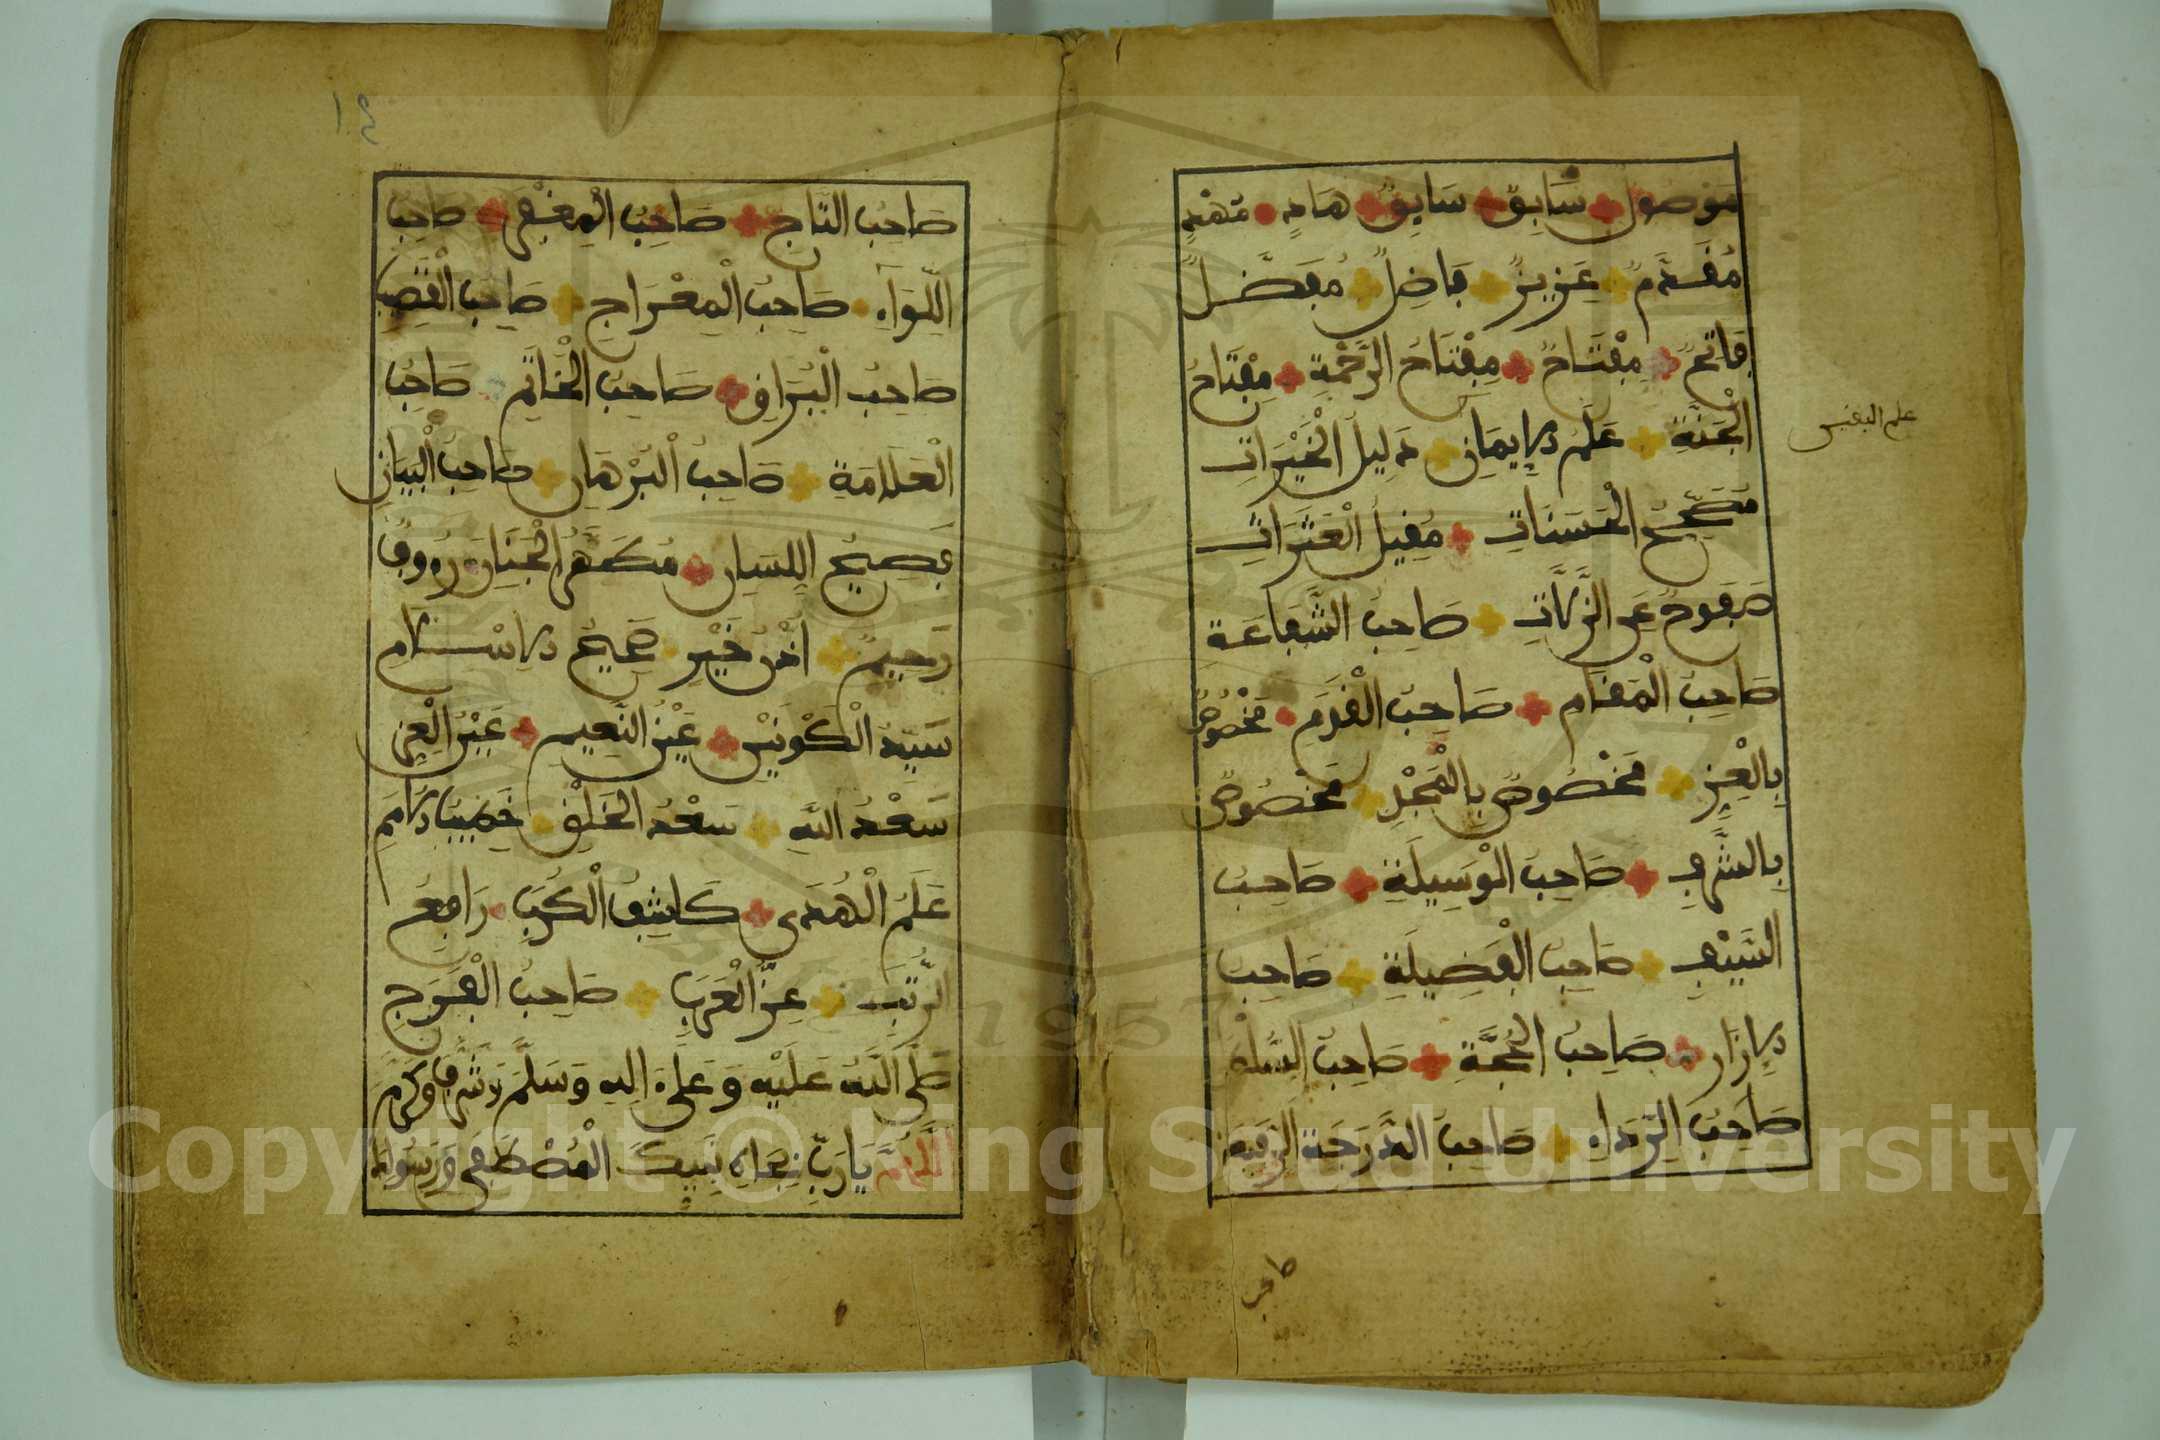 مَوْصُولٌ سَابِقٌ سَايِقٌ هَادٍ مُهْدٍ
مُقَدَّمٌ عَزِيزٌ فَاضِلٌ مُفَضَّلٌ
فَاتِحٌ مِفْتَاحٌ مِفْتَاحُ الرَّحْمَةِ مِفْتَاحُ
الْجَنَّةِ عَلَمُ الإِيمَانِ دَلِيلُ الْخَيْرَاتِ
علم اليقين
مُصَحِّحُ الْحَسَنَاتِ مُقِيلُ الْعَثَرَاتِ
صَفُوحٌ عَنِ الزَّلَّاتِ صَاحِبُ الشَّفَاعَةِ
صَاحِبُ الْمَقَامِ صَاحِبُ الْقَدَمِ مَخْصُوصٌ
بِالْعِزِّ مَخْصُوصٌ بِالْمَجْدِ مَخْصُوصٌ
بِالشَّرَفِ صَاحِبُ الْوَسِيلَةِ صَاحِبُ
السَّيْفِ صَاحِبُ الْفَضِيلَةِ صَاحِبُ
الإِزَارِ صَاحِبُ الْحُجَّةِ صَاحِبُ السُّلْطَانِ
صَاحِبُ الرِّدَاءِ صَاحِبُ الدَّرَجَةِ الرَّفِيعَةِ
صاحب
١٤
صَاحِبُ التَّاجِ صَاحِبُ الْمِغْفَرِ صَاحِبُ
اللِّوَاءِ صَاحِبُ الْمِعْرَاجِ صَاحِبُ الْقَضِيبِ
صَاحِبُ الْبُرَاقِ صَاحِبُ الْخَاتَمِ صَاحِبُ
الْعَلَامَةِ صَاحِبُ الْبُرْهَانِ صَاحِبُ الْبَيَانِ
فَصِيحُ اللِّسَانِ مُطَهَّرُ الْجَنَانِ رَءُوفٌ
رَحِيمٌ أُذُنُ خَيْرٍ صَحِيحُ الإِسْلَامِ
سَيِّدُ الْكَوْنَيْنِ عَيْنُ النَّعِيمِ عَيْنُ الْغُرِّ
سَعْدُ اللَّهِ سَعْدُ الْخَلْقِ خَطِيبُ الأُمَمِ
عَلَمُ الْهُدَى كَاشِفُ الْكُرَبِ رَافِعُ
الرُّتَبِ عِزُّ الْعَرَبِ صَاحِبُ الْفَرَجِ
صَلَّى اللَّهُ عَلَيْهِ وَعَلَى ءَالِهِ وَسَلَّمَ وَشَرَّفَ وَكَرَّمَ
اللَّهُمَّ يَا رَبِّ بِجَاهِ نَبِيِّكَ الْمُصْطَفَى وَرَسُولِكَ
1957
Copyright © King Saud University